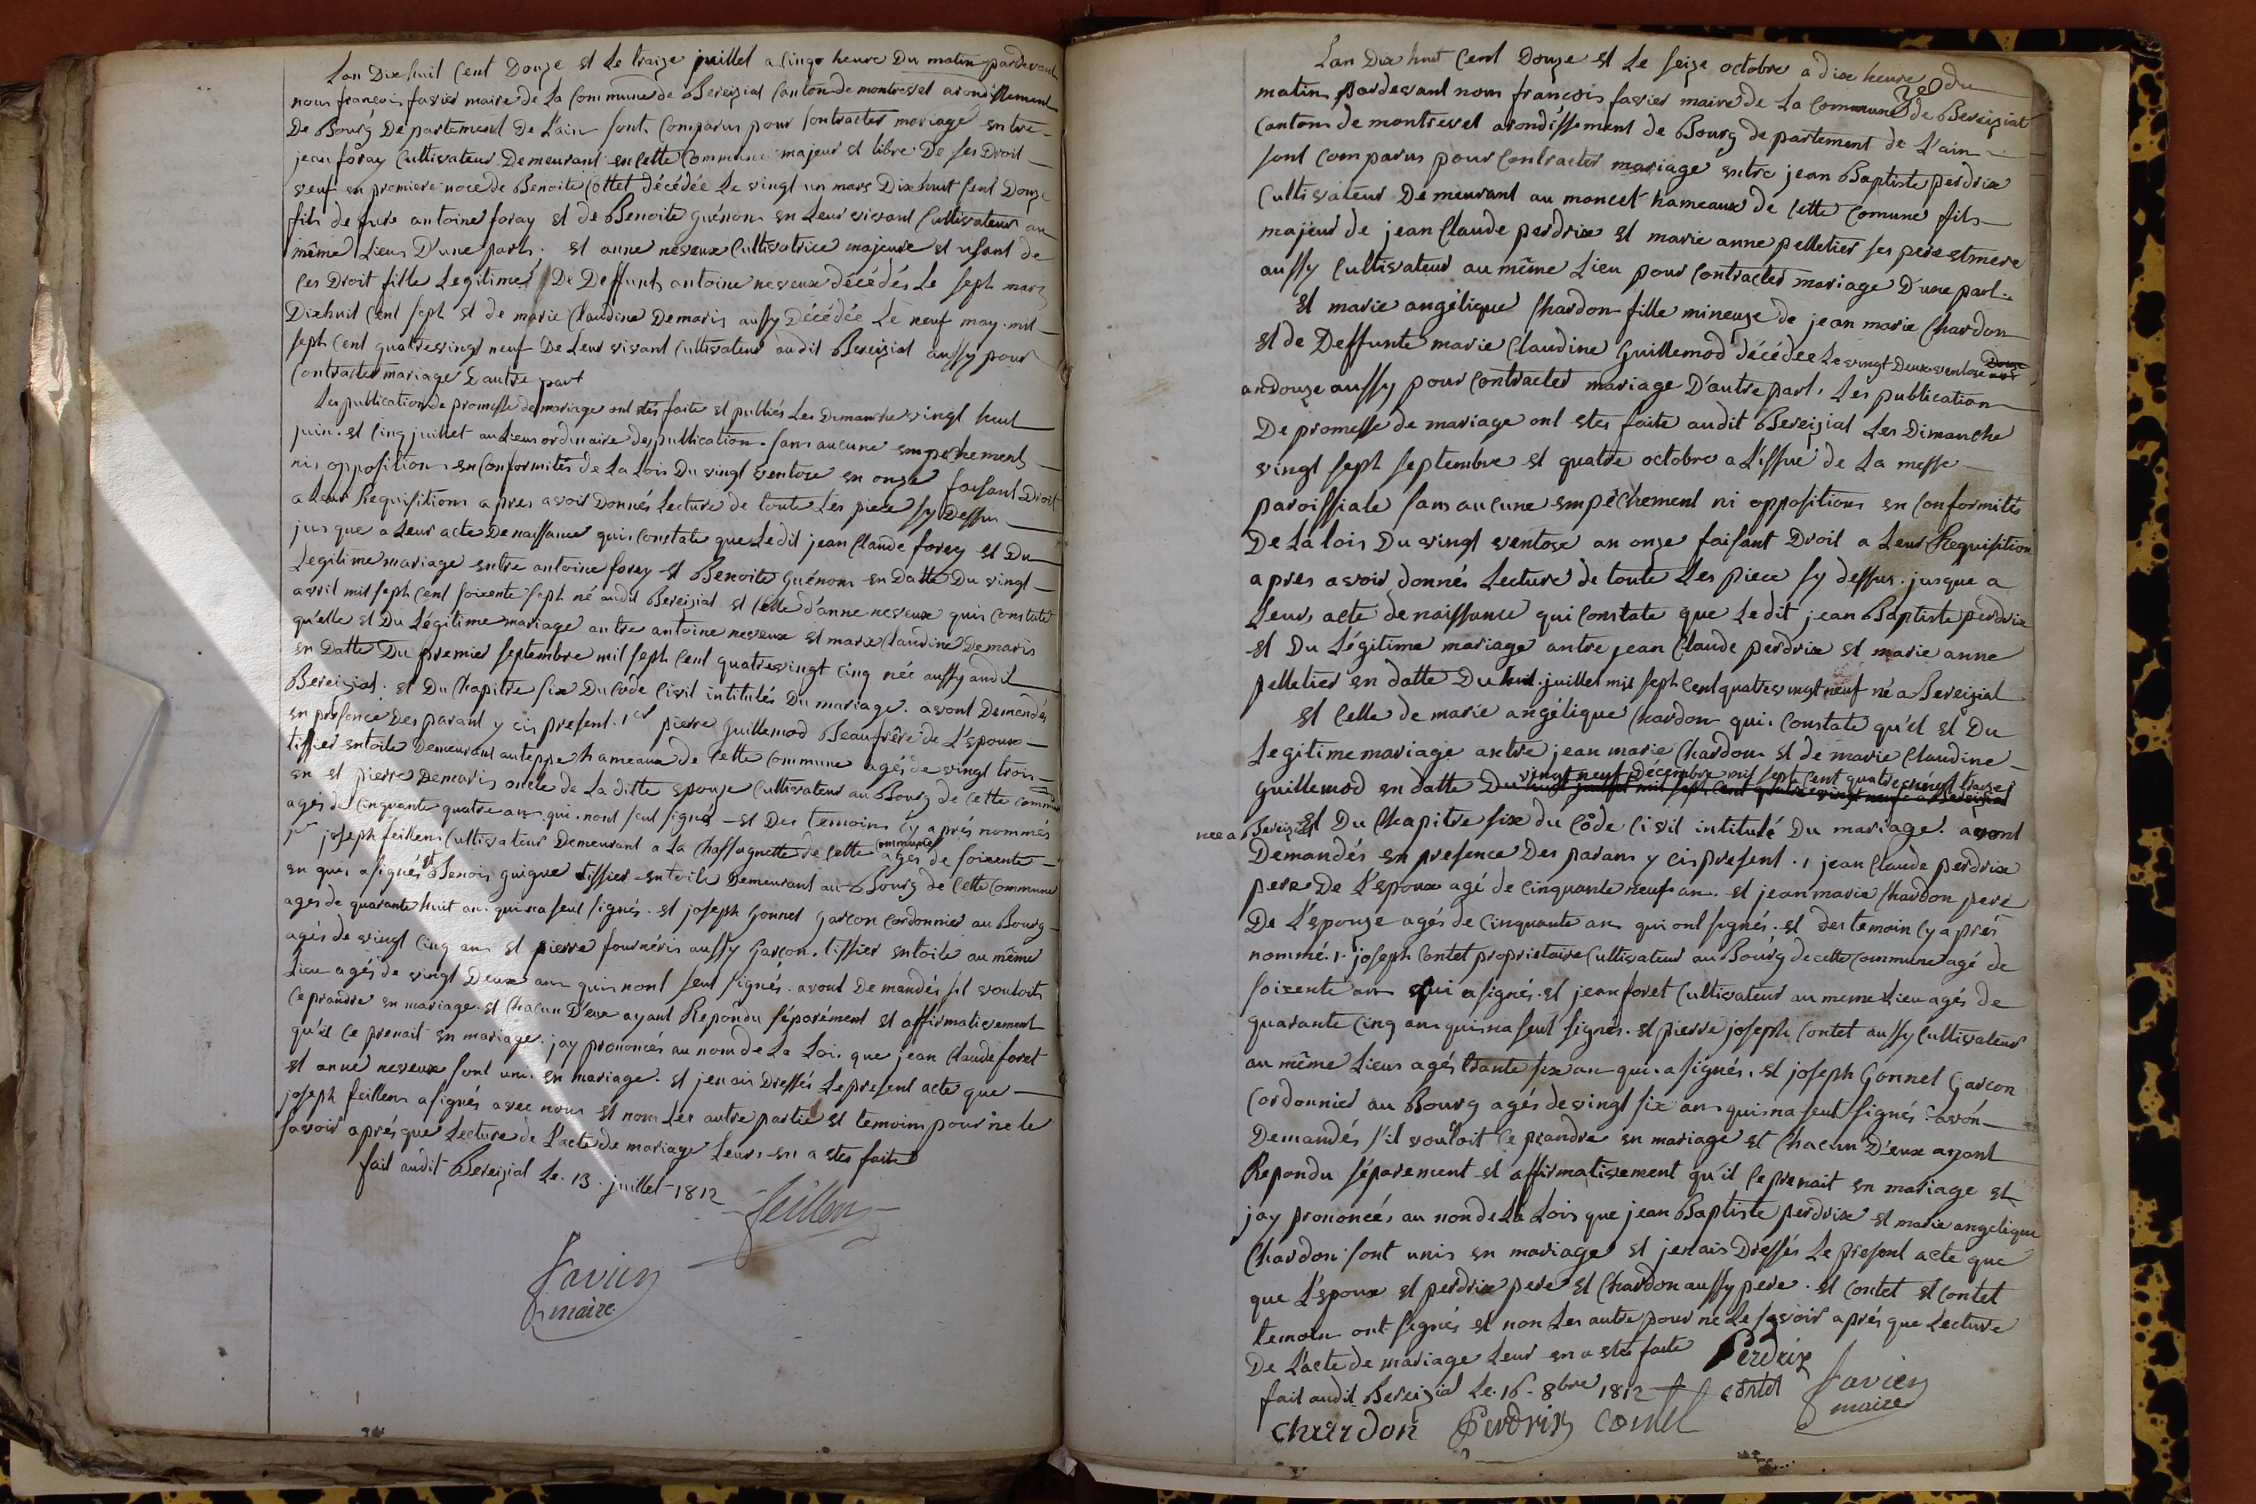 Lan Dix huit Cent Douze et Le traize juillet a Cinqr heure Du matin pardevant
nous françois favier maire de La Commune de Bereiziat Canton de montrevel arondissement
De Bourg Departement de L'ain sont Comparus pour Contracter mariage entre
jean foray Cultivateur Demeurant en Cette Commune majeur et libre De ses Droit
veuf en premiere noce de Benoite Cottet décédée Le vingt un mars Dix huit Cent Douze
fils de fure antoine foray et de Benoite Guénon en Leur vivant Cultivateur au
même Lieu D'une parts, et anne neveux Cultivatrice majeure et usant de
Ces Droit fille Legitime De Deffunts antoine neveux décédés Le sept mars
Dixhuit Cent sept et de marie Claudine Demaris aussy Décédée Le neuf may mil
sept Cent quatrevingt neuf De Leur vivant Cultivateur audit Bereiziat aussy pour
Contracter mariage Dautre part
Les publication de promesse de mariage ont etes faite et publiés Les Dimanche vingt huit
juin et Cinq juillet au Lieus ordinaire des publication sans aucune empechement
nis opposition en Conformités de La Lois Du vingt ventose en onze faisant Droit
a Leur Requisitions apres avoir Donnés Lecture de toute Les piece sy Dessus
jusque a Leur acte De naissance quis constate que Ledit jean Claude forey et Du
Legitime mariage entre antoine forey et Benoite Guénon en Datte Du vingt
avril mil sept Cent soixente sept né audit Bereiziat et Celle d'anne neveux quis constate
qu'elle et Du Légitime mariage antre antoine neveux et marie Claudine Demaris
en Datte Du premier septembre mil sept Cent quatrevingt cinq née aussy audit
Bereiziat. et Du Chapitre six Du Code Civil intitulés Du mariage. avont Demendés
en presence Des parant y cis present. 1er pierre Guillemod Beaufrêre de L'epoux
tissier entoile Demeurant auteppe hameaux de Cette Commune agés de vingt trois
en et pierre Demaris oncle de La ditte epouze Cultivateur au Bourg de Cette Commune
agés de Cinquante quatre an qui nont seut signé et Des temoins Cy aprés nommés
1er joseph feillens Cultivateur Demeurant a La Chassagnette de Cette Commune agés de soixente
en quis a signés et Benois guigue tissier entoile Demeurant au Bourg de Cette Commune
ages de quarante huit an qui na seut signés. et joseph Gonnet Garcon Cordonnier au Bourg
agés de vingt Cinq an et pierre fournéris aussy Garcon tissier entoile au même
Lieu agés de vingt Deux an quis nont seut signés. avont Demandés s'il vouloits
Ce prandre en mariage et Chacun D'eux ayant Repondu séparément et affirmativement
qu'il Ce prenait en mariage. jay prononcés au nom de La Loi. que jean Claude foret
et anne neveux sont unis en mariage. et jenais Dressés Le present acte que
joseph feillens a signés avec nous et non Les autre partie et temoins pour ne Le
savoir aprés que Lecture de L'acte de mariage Leurs en a etes faite
fait audit Bereiziat Le 13 juillet 1812
feillens
favier
maire
Lan Dix huit Cent Douze et Le seize octobre a dix heure du
matin pardevant nous francois favier maire de La Commune de Bereiziat
Canton de montrevel arondissement de Bourg departement de L'ain
sont comparus pour Contracter mariage entre jean Baptiste perdrix
Cultivateur Demeurant au moncet hameaux de Cette Comune fils
majeur de jean Claude perdrix et marie anne pelletier ses pere et mere
aussy Cultivateur au même Lieu pour Contracter mariage D'une part
et marie angélique Chardon fille mineuze de jean marie Chardon
et de Deffunte marie Claudine Guillemod décédée Le vingt Deux ventose
an douze aussy pour Contracter mariage D'autre part, Les publication
De promesse de mariage ont etes faite audit Bereiziat Les Dimanche
vingt sept septembre et quatre octobre a L'issue de La messe
paroissiale sans aucune empêchement ni opposition en Conformités
De La lois Du vingt ventose an onze faisant Droit a Leur Requisition
apres avoir donnés Lecture de toute Les piece sy dessus. jusque a
Leurs acte de naissance qui constate que Ledit jean Baptiste perdrix
et Du Légitime mariage antre jean Claude perdrix et marie anne
pelletier en datte Du huit juillet mil sept Cent quatrevingt neuf né a Bereiziat
et Celle de marie angélique Chardon qui constate qu'el et Du
Legitime mariage antre jean marie Chardon et de marie Claudine
Guillemod en datte Du vingt neuf Décembre mil sept Cent quatrevingt traize
née a Bereiziat et Du Chapitre six du Côde Civil intitulé Du mariage. avont
Demandés en presence Des parans y cis present. 1 jean Claude perdrix
pere De L'epoux agé de cinquante neuf an. et jean marie Chardon pere
De L'épouze agés de Cinquante an qui ont signés. et des temoin Cy aprés
nommé. 1 joseph Contet proprietaire Cultivateur au Bourg de cette Commune agé de
soixente an qui a signés. et jean foret Cultivateur au meme Lieu agés de
quarante Cinq an quis na seut signés. et pierre joseph Contet aussy Cultivateur
au même Lieus agés trante six an qui a signés. et joseph Gonnet Garcon
Cordonnier au Bourg agés de vingt six an quis na seut signés. avon
Demandés s'il vouloit Ce prandre en mariage et Chacun D'eux ayant
Repondu séparement et affirmativement qu'il Ce prenait en mariage et
jay prononcés au non de La Lois que jean Baptiste perdrix et marie angelique
Chardon sont unis en mariage et jenais Dressés Le present acte que
que L'epoux et perdrix pere et Chardon aussy pere. et contet et Contet
temoin ont signés et non Les autre pour ne Le savoir aprés que Lecture
De L'acte de mariage Leur en a etés faite Perdrix
fait audit Bereiziat Le 16 8bre 1812 contet favier
maire
Chardon Perdrix Contet